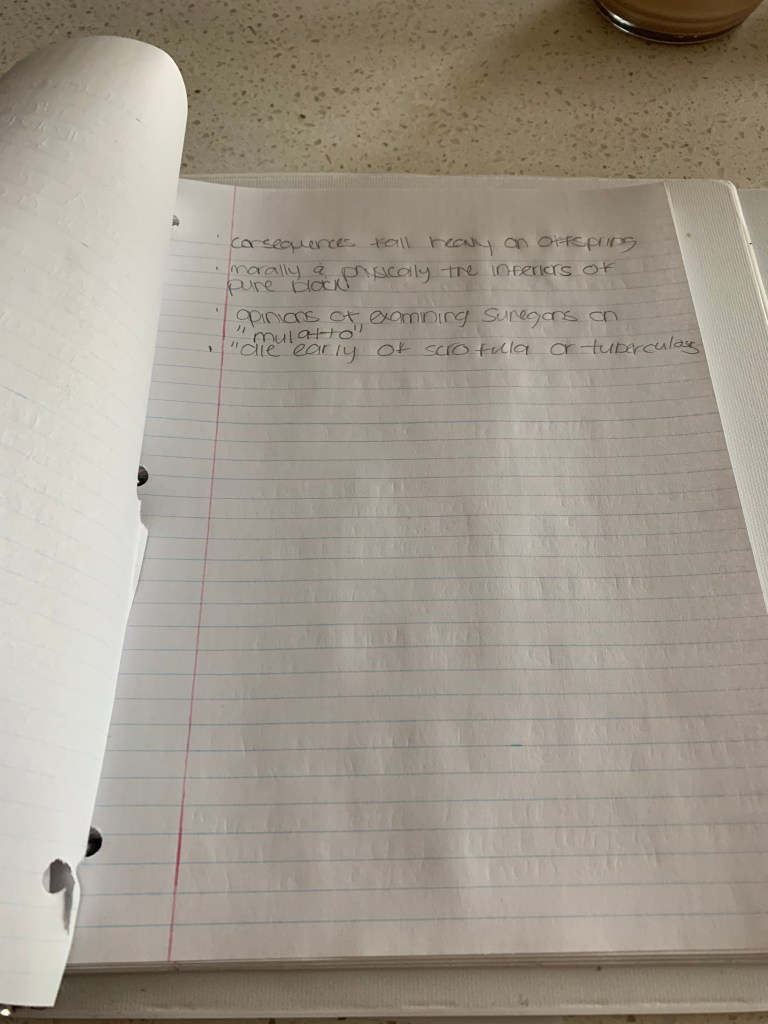 · consequences fall heavy on offspring
· morally & physicaly the inferiors of
pure black
· opinions of examining Suregons on
"mulatto"
· "die early of scrofulla or tuberculas